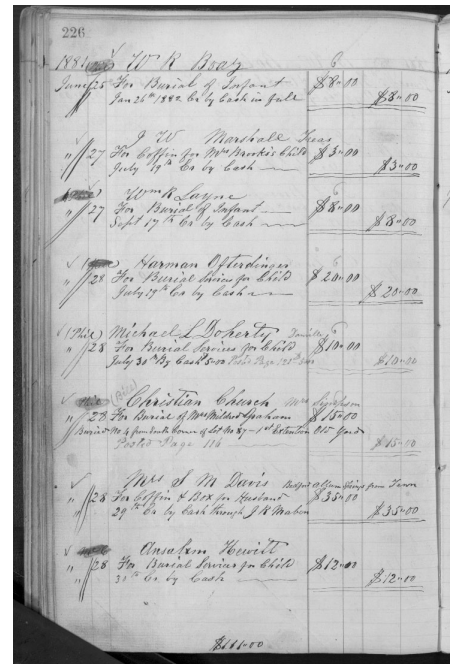 226
1881 W R Boaz 6
June 25 For Burial of Infant $8-00
Jan 26th 1882 Cr by Cash in full $8-00
J W Marshall Treas
" 27 For Coffin for Mrs Child $3-00
July 19th Cr by Cash $3-00
Wm R Layne 6
" 27 For Burial of Infant $8-00
Sept 17th Cr by Cash $8-00
Harman Ofterdinger 6
" 28 For Burial Services for Child $20-00
July 9th Cr by Cash $20-00
(Phil) Michael L Doherty 6
" 28 For Burial Services for Child $10-00
July 30th By Cash 5-00 Page $10-00
Christian Church Mrs
" 28 For Burial of Mrs Mildred Graham $15-00
Buried No 4 from South Corner of Lot No 87 - 1st Extention Old Yard
Posted Page 116 $15-00
Mrs S M Davis Bedford Springs from Town
" 28 For Coffin & Box for Husband $35-00
" 29th Cr by Cash through J R Maben $35-00
Ansalem Hewitt
" 28 For Burial Services for Child $12-00
" 30th Cr by Cash $12-00
$111-00